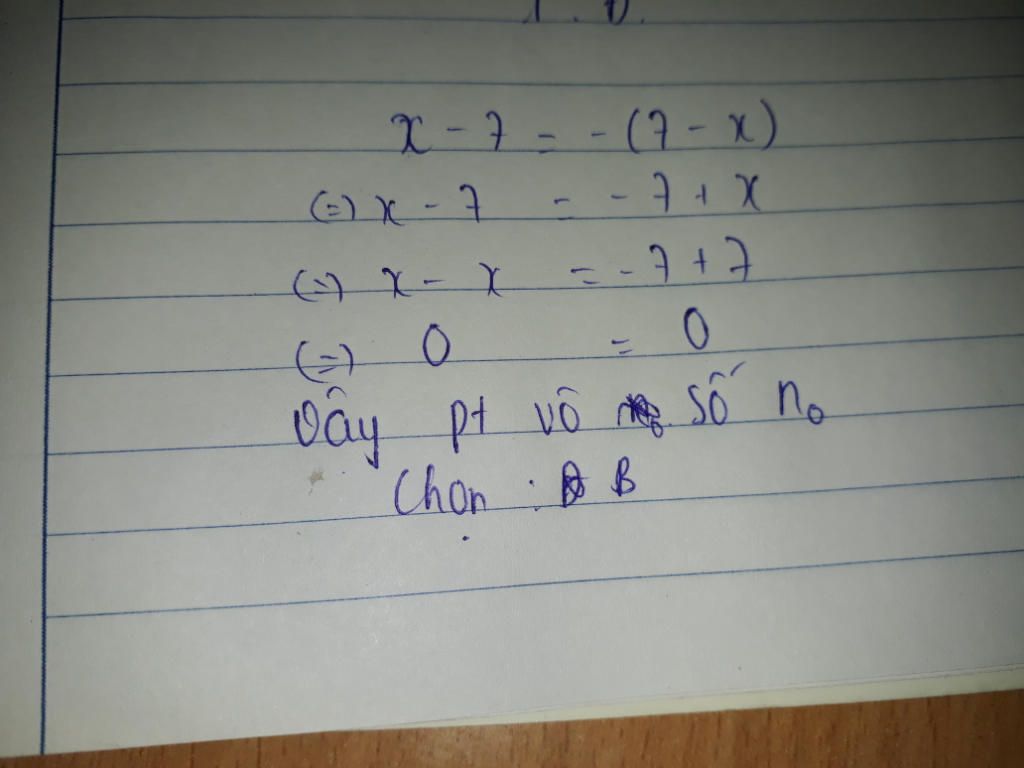 x - 7 = - (7 - x)
(=) x - 7 = - 7 + x
(=) x - x = - 7 + 7
(=) 0 = 0
Vây pt vô số n0
Chọn : B